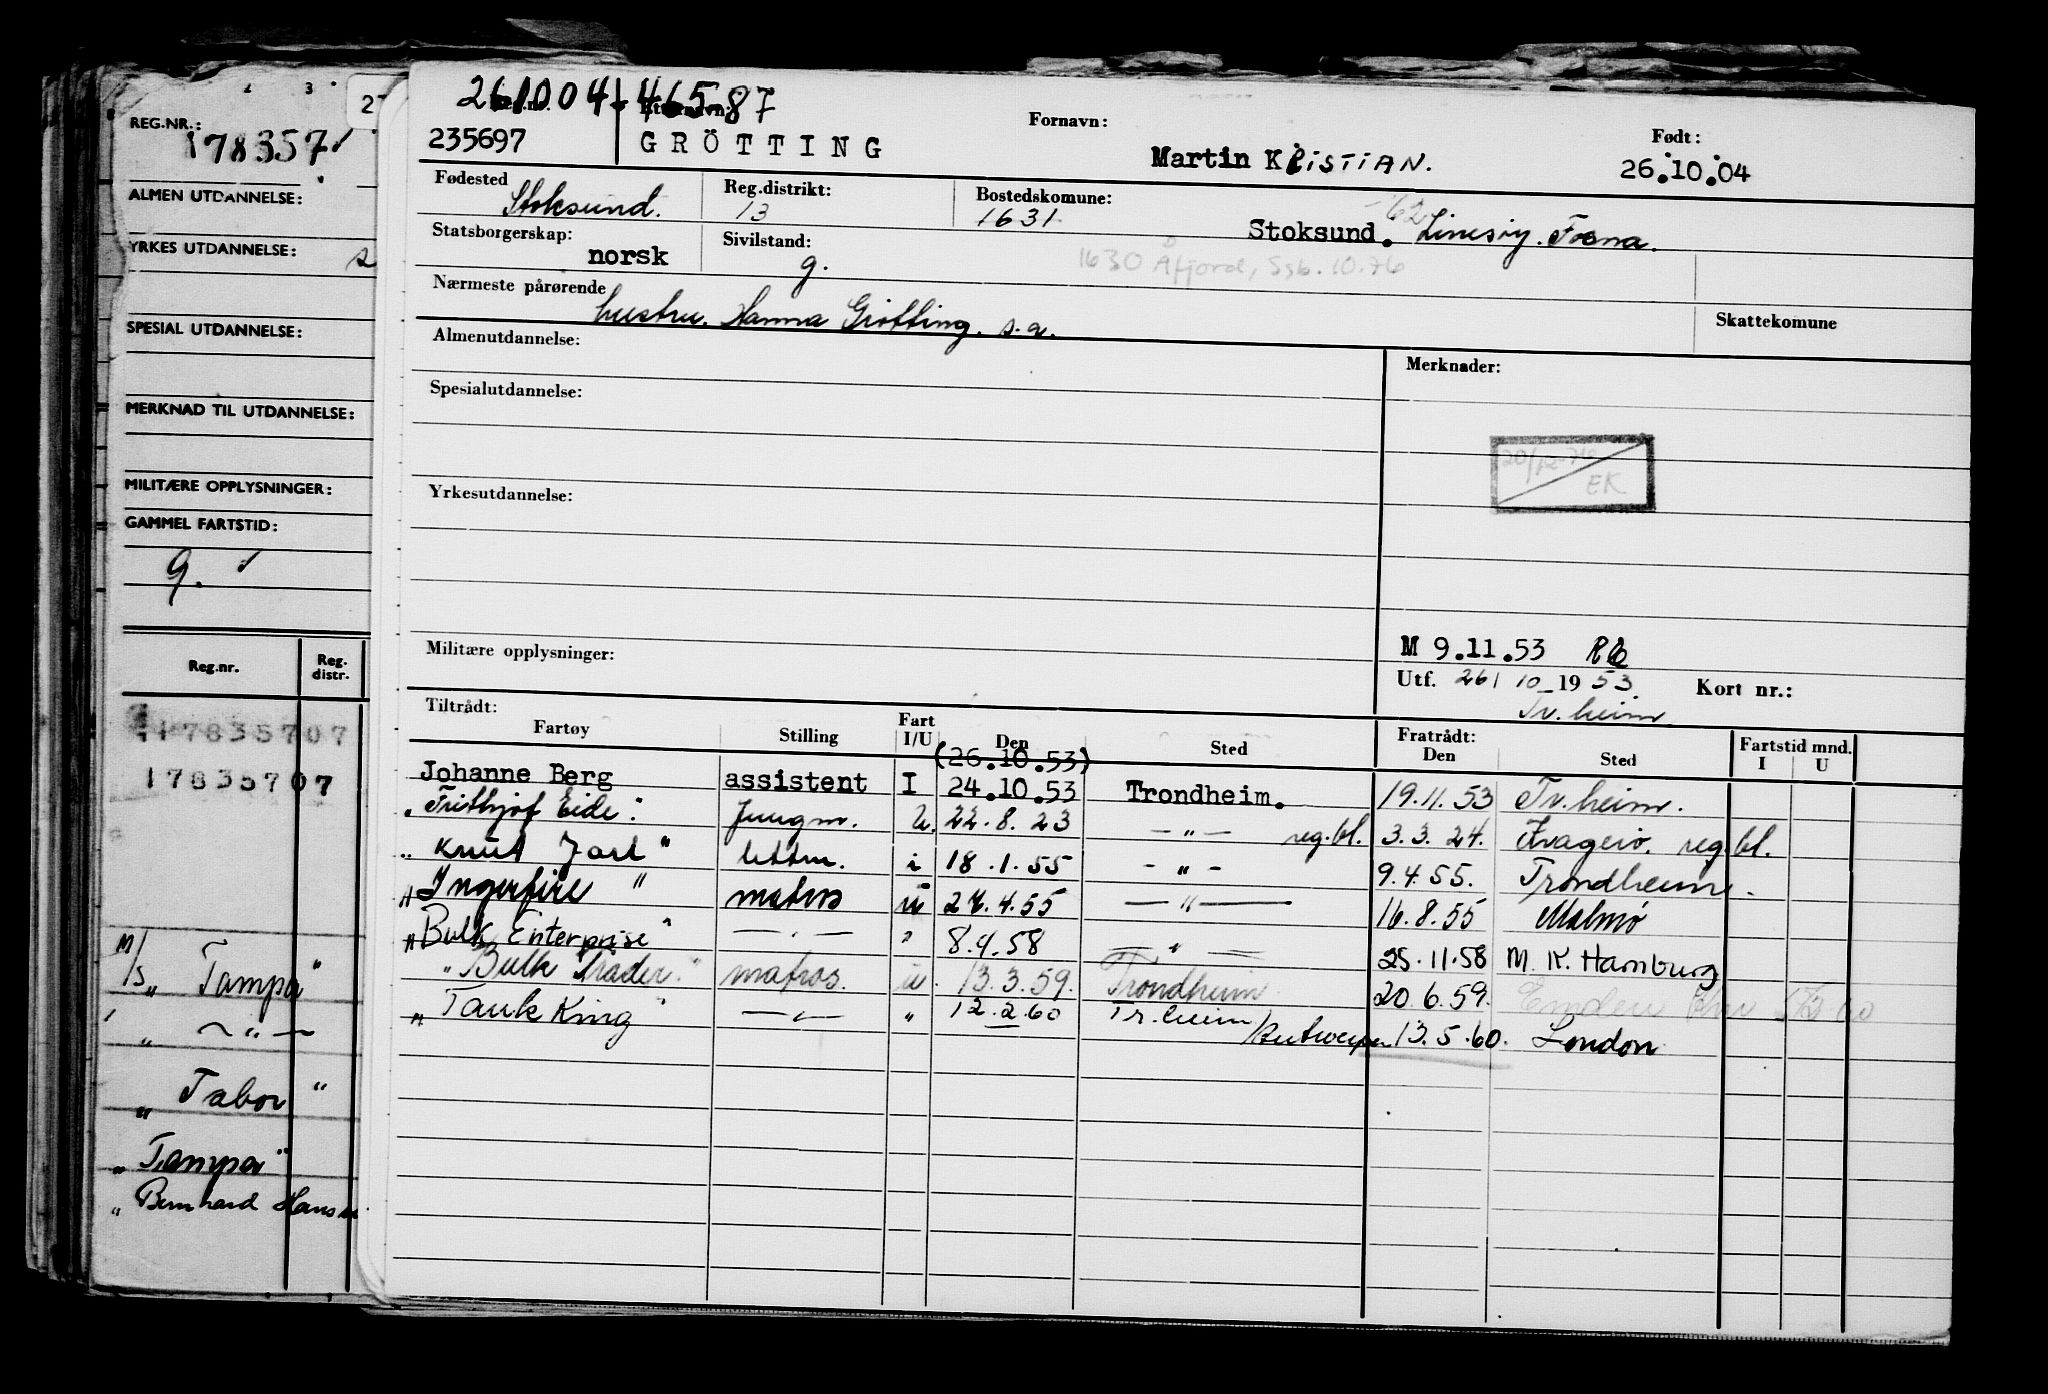 2 3
2
REG.NR.:
178357
ALMEN UTDANNELSE:
YRKES UTDANNELSE:
SPESIAL UTDANNELSE:
MERKNAD TIL UTDANNELSE:
MILITÆRE OPPLYSNINGER:
GAMMEL FARTSTID:
g.
Reg.nr. Reg. distr.
17835707
17835707
M/S „ Tampa "
„ — " —
„ Tabor "
„ Tampa "
„ Bernhard
261004 46587
235697 GRÖTTING Fornavn: Martin KRISTIAN. Født: 26.10.04
Fødested Stoksund. Reg.distrikt: 13 Bostedskomune: 1631 Stoksund. -62
Statsborgerskap: norsk Sivilstand: g. 1630 Afjord, Ssb. 10.76
Nærmeste pårørende hustru. Hanna Grötting. s.a. Skattekomune
Almenutdannelse: Merknader:
Spesialutdannelse:
EK
Yrkesutdannelse:
Militære opplysninger: M 9.11.53
Utf. 26/10 1953. Kort nr.:
Tr.heim
Tiltrådt: Fratrådt: Fartstid mnd.
Fartøy Stilling Fart I/U Den Sted Den Sted I U
(26.10.53)
Johanne Berg assistent I 24.10.53 Trondheim. 19.11.53 Tr.heim.
„ Frithjof Eide " Jungm. U. 22.8.23 — " — reg.bl. 3.3.24. reg.bl.
„ Knut Jarl " lettm. i 18.1.55 - " - 9.4.55. Trondheim.
„ Ingerfire " matros u — " — 16.8.55 Malmø
„ Bulk Enterprise " — " — " — " — 25.11.58 M. K. Hamburg
„ Bulk Trader " matros. u. 13.3.59. Trondheim 20.6.59. Emden
„ Tank King " — " — " 12.2.60 Tr.heim/Antwerpen 13.5.60. London